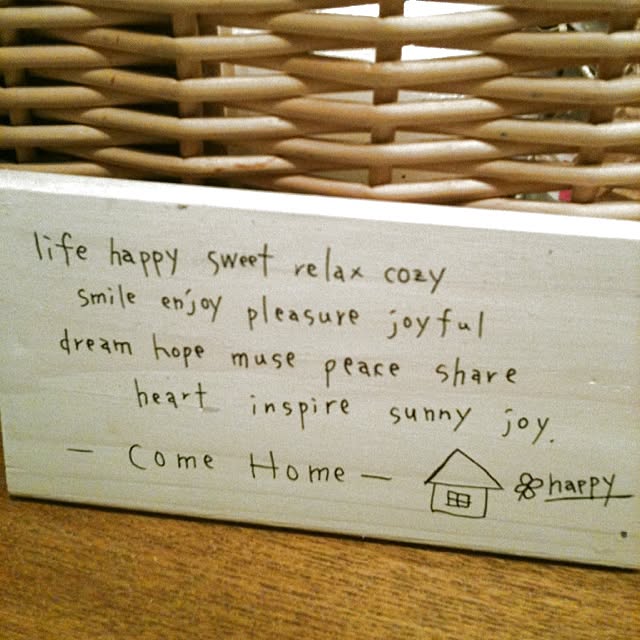 life happy sweet relax cozy
smile enjoy pleasure joyful
dream hope muse peace share
heart inspire sunny joy.
— Come Home — happy